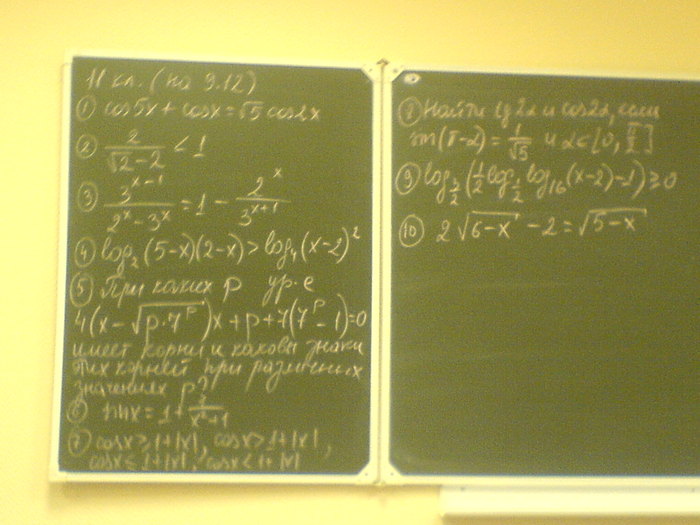 11 кл. (на 9.12)
① cos5x + cosx = √5 cos2x
② 2/(√2-2) < 1
③ 3^(x-1)/(2^x - 3^x) = 1 - 2^x/3^(x+1)
④ log₂(5-x)(2-x) > log₄(x-2)²
⑤ При каких p ур-е
4(x - √(p·7^p))x + p + 7(7^p - 1) = 0
имеет корни и каковы знаки
этих корней при различных
значениях p?
⑥ sinx = 1 + 1/(x²+1)
⑦ cosx ≥ 1+|x|, cosx > 1+|x|,
cosx ≤ 1+|x|, cosx < 1+|x|
⑧ Найти tg2α и cos2α, если
sin(π-α) = 1/√5 и α∈[0, π/2]
⑨ log_(3/2)(½log_(½)log₁₆(x-2)-1) ≥ 0
⑩ 2√(6-x) - 2 = √(5-x)